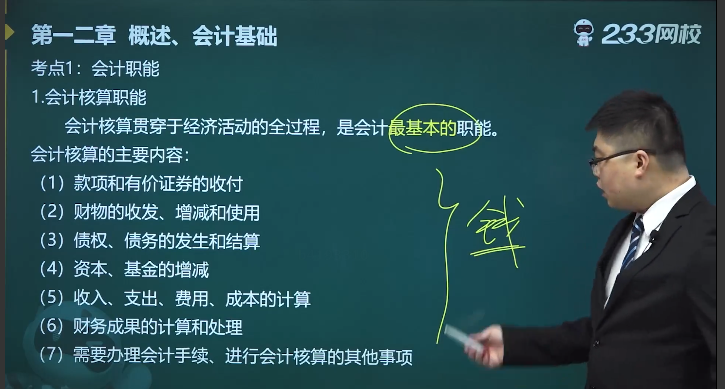 第一二章 概述、会计基础
233网校
考点1：会计职能
1.会计核算职能
会计核算贯穿于经济活动的全过程，是会计最基本的职能。
会计核算的主要内容：
（1）款项和有价证券的收付
（2）财物的收发、增减和使用
（3）债权、债务的发生和结算
（4）资本、基金的增减
（5）收入、支出、费用、成本的计算
（6）财务成果的计算和处理
（7）需要办理会计手续、进行会计核算的其他事项
钱